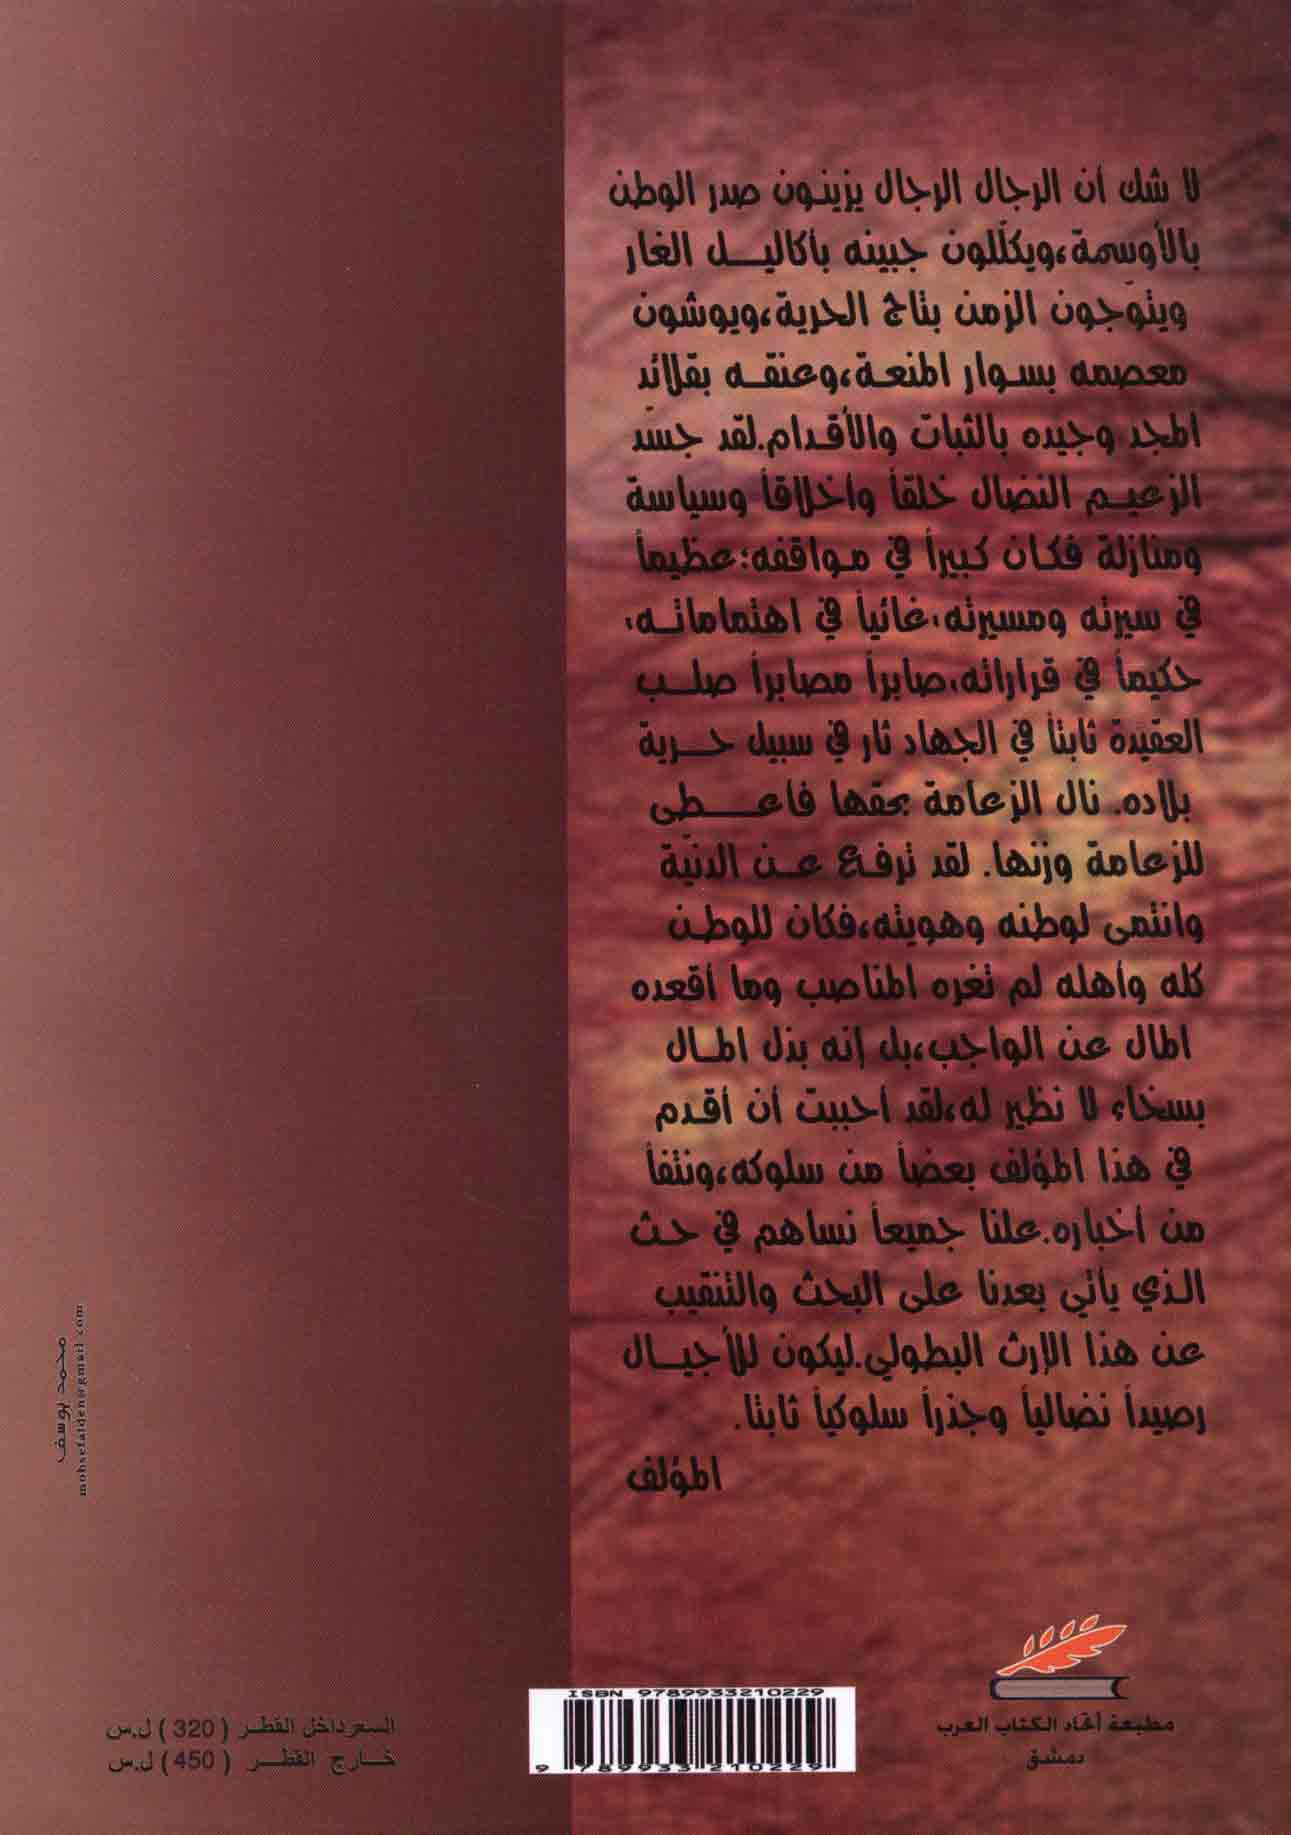 لا شك أن الرجال الرجال يزينون صدر الوطن
بالأوسمة،ويكلّلون جبينه بأكاليل الغار
ويتوّجون الزمن بتاج الحرية،ويوشون
معصمه بسوار المنعة،وعنقه بقلائد
المجد وجيده بالثبات والأقدام.لقد جسّد
الزعيم النضال خلقاً وأخلاقاً وسياسة
ومنازلة فكان كبيراً في مواقفه؛عظيماً
في سيرته ومسيرته،غائياً في اهتماماته،
حكيماً في قراراته،صابراً مصابراً صلب
العقيدة ثابتاً في الجهاد ثار في سبيل حرية
بلاده. نال الزعامة بحقها فأعطى
للزعامة وزنها. لقد ترفع عن الدنيّة
وانتمى لوطنه وهويته،فكان للوطن
كله وأهله لم تغره المناصب وما أقعده
المال عن الواجب،بل إنه بذل المال
بسخاء لا نظير له،لقد أحببت أن أقدم
في هذا المؤلف بعضاً من سلوكه،ونتفاً
من أخباره.علنا جميعاً نساهم في حث
الذي يأتي بعدنا على البحث والتنقيب
عن هذا الإرث البطولي.ليكون للأجيال
رصيداً نضالياً وجذراً سلوكياً ثابتا.
المؤلف
محمد يوسف
mohsefalden@gmail.com
مطبعة أتحاد الكتاب العرب
دمشق
ISBN 9789933210229
9 789933 210229
السعرداخل القطر ( 320 ) ل.س
خارج القطر ( 450 ) ل.س